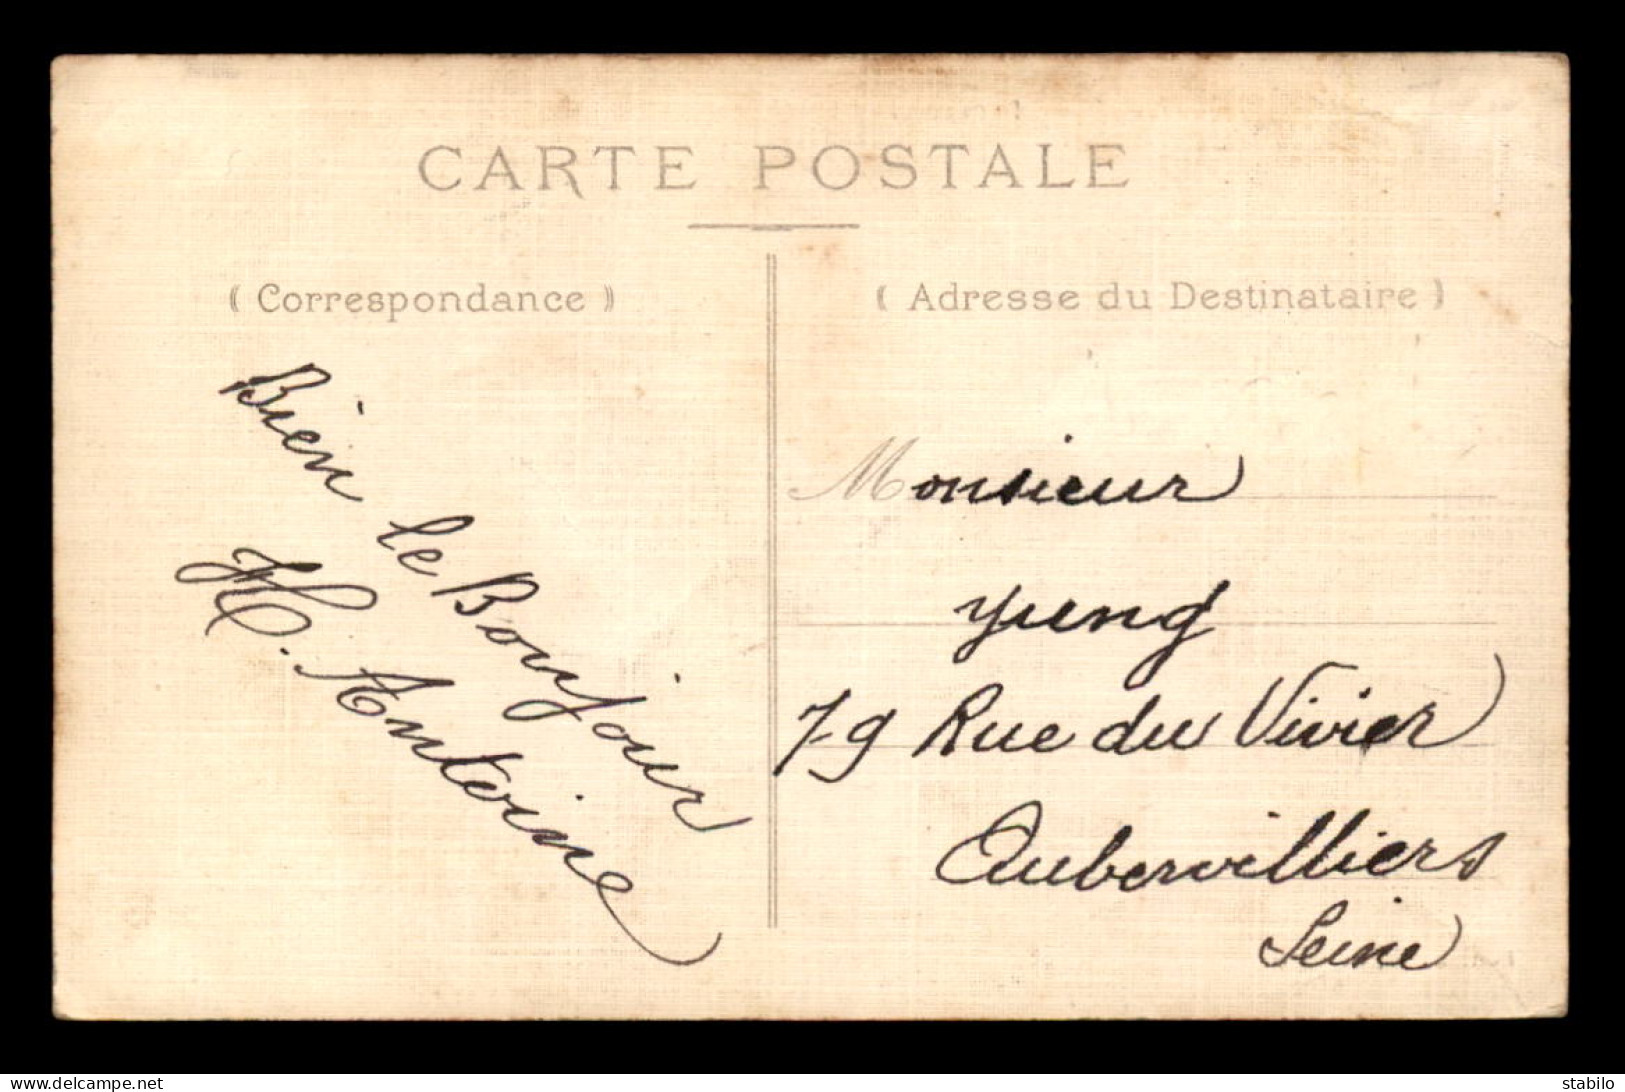 CARTE POSTALE
( Correspondance )
Bien le Bonjour
H. Antoine
( Adresse du Destinataire )
Monsieur
Yung
79 Rue du Vivier
Aubervilliers
Seine
delcampe.net
stabilo